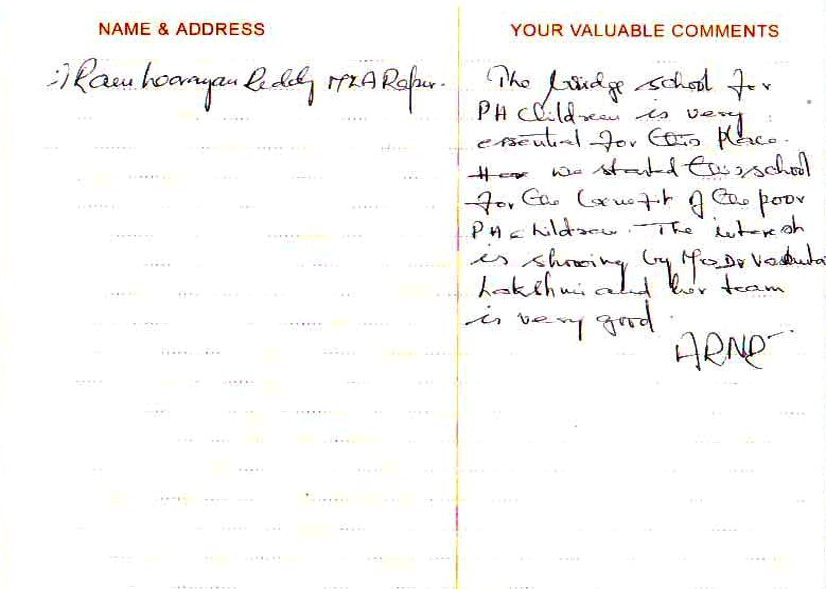 NAME & ADDRESS
YOUR VALUABLE COMMENTS
Reddy MLA Rapur.
The bridge school for
PH children is very
essential for this place.
we started this school
for the benefit of the poor
PH children. The interest
is showing by Mrs Dr
Lakshmi and her team
is very good.